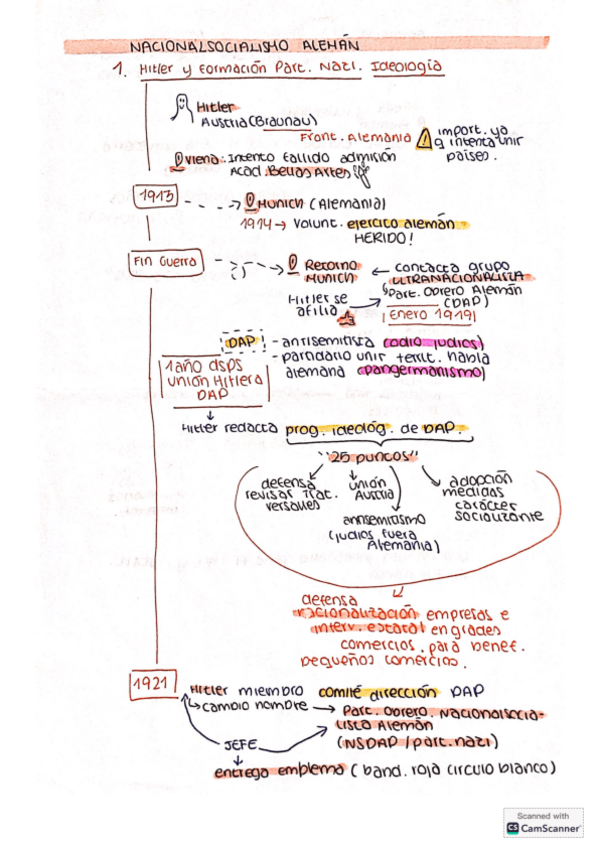 NACIONALSOCIALISMO ALEMÁN
1. Hitler y Formación Part. Nazi. Ideología
Hitler
Austria (Braunau)
Front. Alemania
import. ya
q intenta unir
países.
Viena: Intento fallido admisión
Acad. Bellas Artes
1913
Munich (Alemania)
1914 → Volunt. ejercito alemán
HERIDO!
Fin Guerra
Retorno
Munich
← contacta grupo
ULTRANACIONALISTA
Part. Obrero Alemán
(DAP)
Hitler se
afilia
Enero 1919
DAP
- antisemitista (odio judíos)
- partidario unir territ. habla
alemana (pangermanismo)
1 año dsps
unión Hitler a
DAP
Hitler redacta prog. ideológ. de DAP.
"25 puntos"
defensa
revisar Trat.
Versalles
unión
Austria
antisemitismo
(judíos fuera
Alemania)
adopción
medidas
carácter
socializante
defensa
nacionalización empresas e
interv. estatal en grades
comercios, para benef.
pequeños comercios.
1921
Hitler miembro comité dirección DAP
↳ cambio nombre → Part. Obrero. Nacionalsocia-
lista Alemán
(NSDAP / part. nazi)
JEFE
entrega emblema ( band. roja circulo blanco)
Scanned with
CS CamScanner